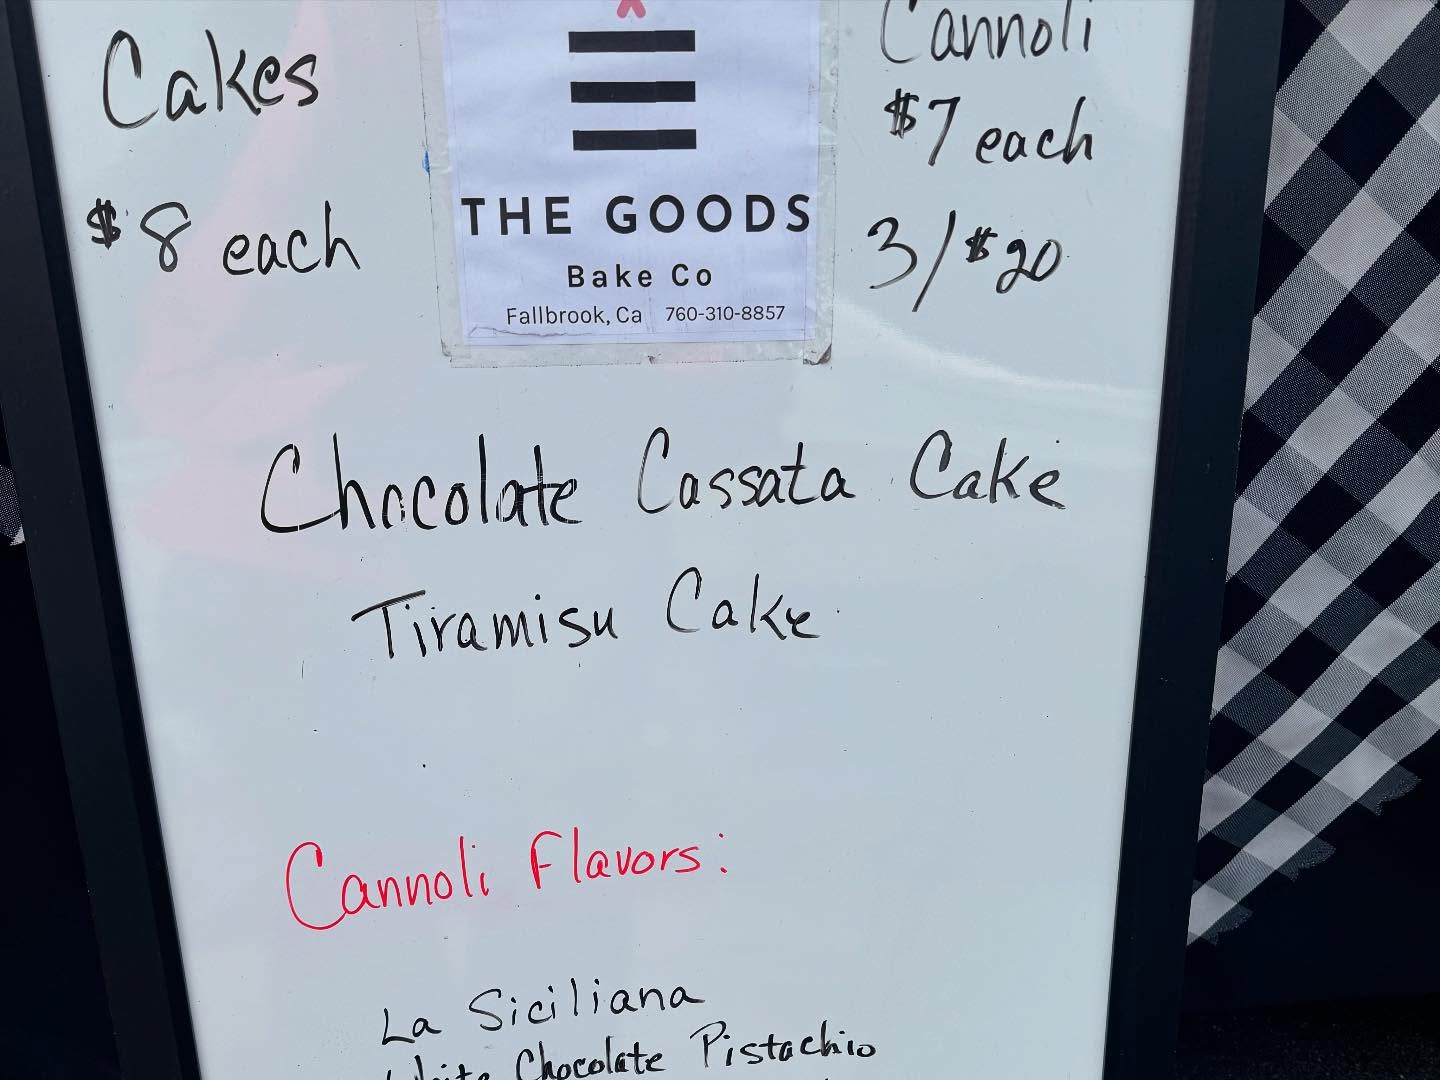 Cakes
$8 each
THE GOODS
Bake Co
Fallbrook, Ca 760-310-8857
Cannoli
$7 each
3/$20
Chocolate Cassata Cake
Tiramisu Cake
Cannoli Flavors:
La Siciliana
White Chocolate Pistachio